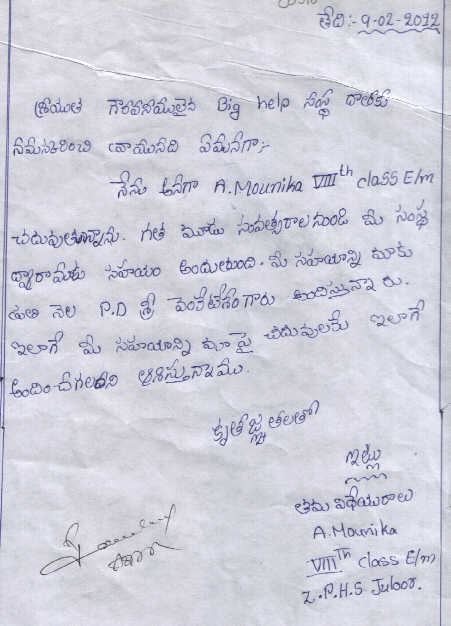 తేది:- 9-02-2012
శ్రీయుత గౌరవనీయులైన Big help సంస్థ దాతలకు
నమస్కరించి వ్రాయునది ఏమనగా:-
నేను అనగా A.Mounika VIIIth class E/m
చదువుతున్నాను. గత మూడు సంవత్సరాల నుండి మీ సంస్థ
ద్వారా మాకు సహాయం అందుతుంది. మీ సహాయాన్ని మాకు
ప్రతి నెల P.D శ్రీ వెంకటేశంగారు అందిస్తున్నారు.
ఇలాగే మీ సహాయాన్ని మా పై చదువులకు ఇలాగే
అందించగలరని ఆశిస్తున్నాము.
కృతజ్ఞతలతో
ఇట్లు
తమ విధేయురాలు
A.Mounika
VIIITh class E/m
Z.P.H.S Juloor.